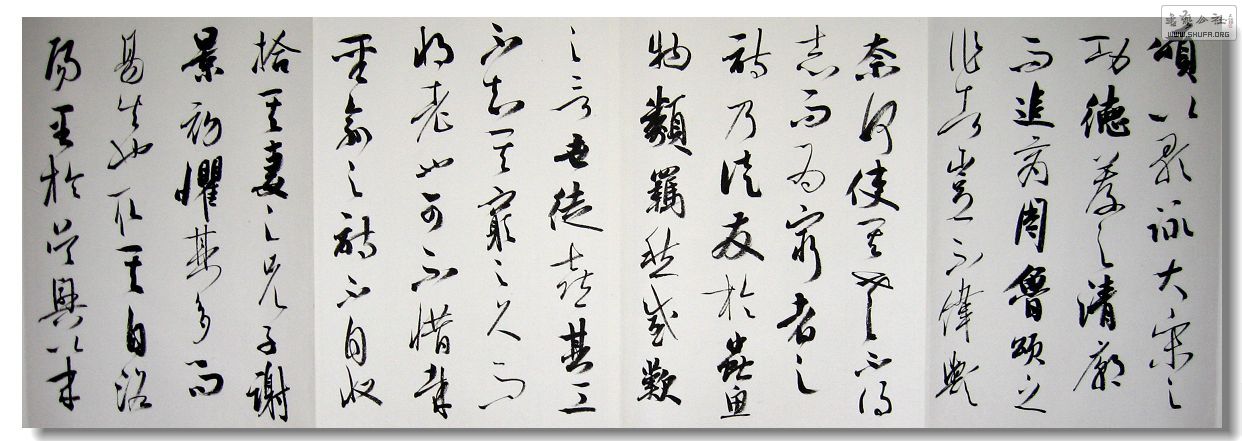 頌以歌詠大宋之
功德薦之清廟
而追商周魯頌之
作者豈不偉歟
奈何使其老不得
志而為窮者之
詩乃徒發於蟲魚
物類羈愁感歎
之言世徒喜其工
不知其窮之久而
將老也可不惜哉
聖俞之詩不自收
拾其妻之兄子謝
景初懼其多而
易失也取其自洛
陽至於吳興以來
书艺公社
WWW.SHUFA.ORG